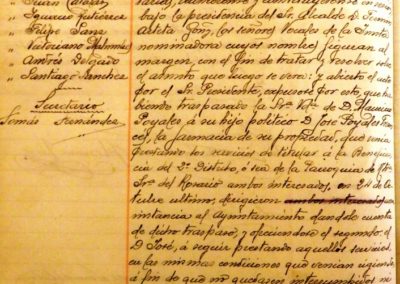 " Juan Catalán
" Ignacio Gutiérrez
" Felipe Sanz
" Victoriano
" Andrés Delgado
" Santiago Sanchez
Secretario
Tomás Fernández
bajo la presidencia del Sr. Alcalde D.
los señores Vocales de la Junta
nominadora cuyos nombres figuran al
margen, con el fin de tratar y resolver sobre
el asunto que luego se verá: y abierto el acto
por el Sr. Presidente, expuso: por este, que ha-
biendo traspasado la Sra. Vda. de D. Mauricio
Poyales á su hijo politico D. José Poyales
la farmacia de su propiedad, que venia
prestando los servicios de titular á la Benefi-
cia del 2º Distrito, ó sea de la Parroquia de Ntra.
Sra. del Rosario ambos interesados, en 28 de Oc-
tubre ultimo, dirigieron ambos interesados
instancia al Ayuntamiento dandole cuenta
de dicho traspaso; y ofreciendose el segundo, el
D. José, á seguir prestando aquellos servicios,
en las mismas condiciones que venian
á fin de que no quedasen interrumpidos